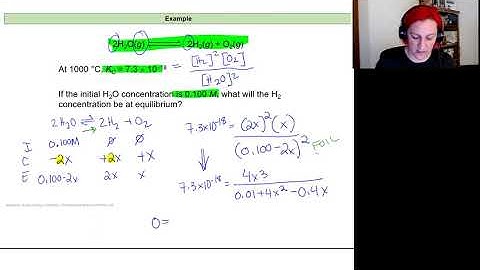 Example
2H₂O(g) ⇌ 2H₂(g) + O₂(g)
At 1000 °C, K꜀ = 7.3 × 10⁻¹⁸ = [H₂]² [O₂] / [H₂O]²
If the initial H₂O concentration is 0.100 M, what will the H₂
concentration be at equilibrium?
2H₂O ⇌ 2H₂ + O₂
I 0.100M 0 0
C -2x +2x +x
E 0.100-2x 2x x
7.3x10⁻¹⁸ = (2x)²(x) / (0.100-2x)²
FOIL
7.3x10⁻¹⁸ = 4x3 / 0.01+4x²-0.4x
0=